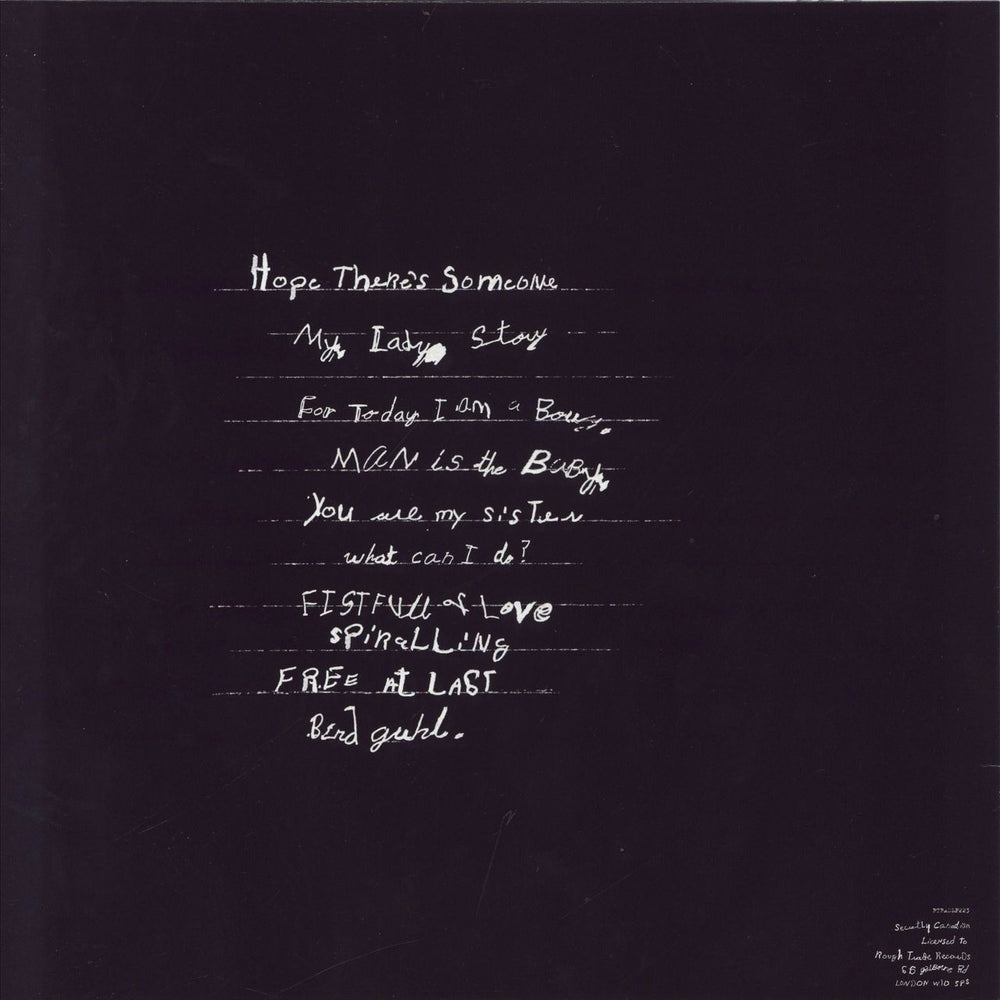 Hope There's Someone
My Lady Story
For Today I am a Bouy.
MAN is the Baby
You are my sister
what can I do?
FISTFUll of Love
SPiRaLLiNg
FREE At LAST
Bird guhl.
RTRADLP223
Secretly Canadian
Licensed To
Rough Trade Records
66 golborne Rd
LONDON W10 5PS